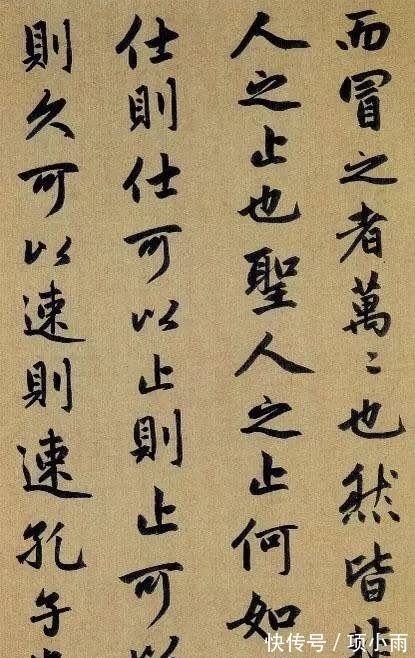 而冒之者萬〻也然皆非
人之止也聖人之止何如
仕則仕可以止則止可以
則久可以速則速孔子
快传号／项小雨